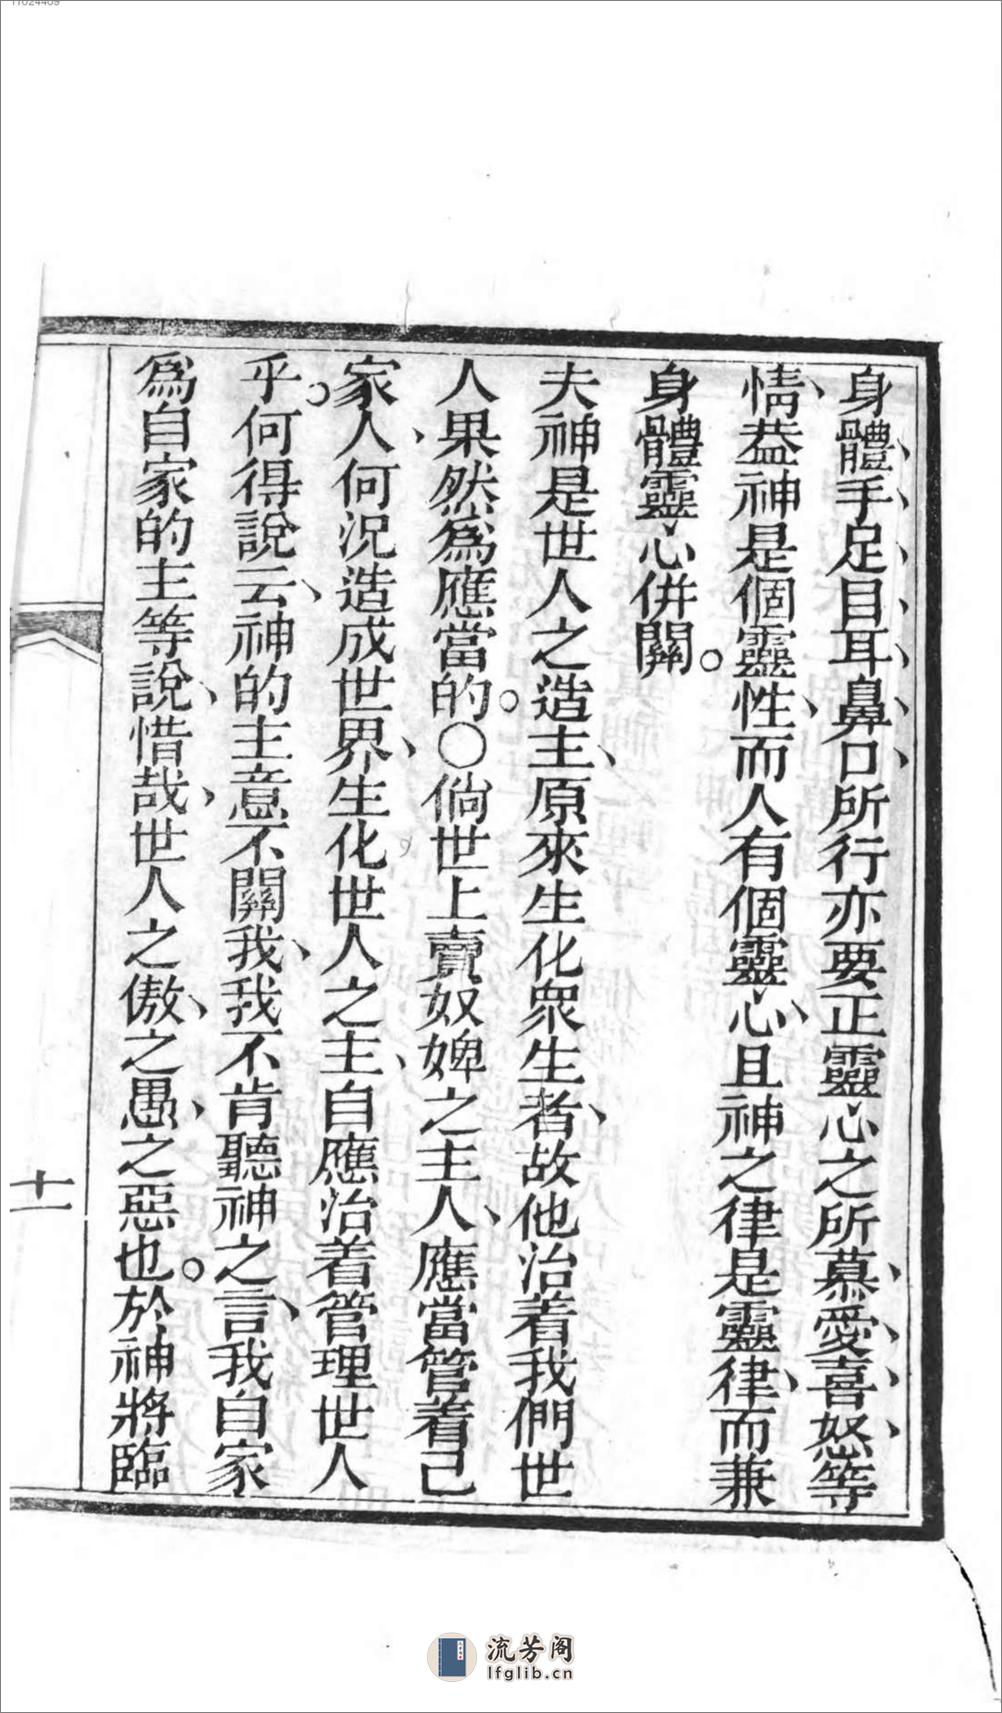 身體、手、足、目、耳、鼻、口、所行亦要正靈心之所慕、愛、喜、怒、等
情、葢神是個靈性、而人有個靈心、且神之律是靈律、而兼
身體靈心併關。
夫神是世人之造主、原來生化衆生者、故他治着我們世
人、果然爲應當的。〇倘世上賣奴婢之主人、應當管着己
家人、何況造成世界、生化世人之主、自應治着管理世人
乎。何得說云、神的主意不關我、我不肯聽神之言、我自家
爲自家的主等說、惜哉、世人之傲、之愚、之惡也。於神將臨
十一
流芳阁
lfglib.cn